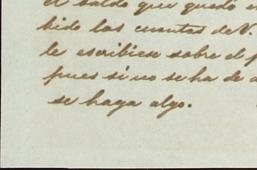 el saldo que quedó e
bido las cuentas de V.
le escribiese sobre el p
pues si no se ha de a
se haya algo.